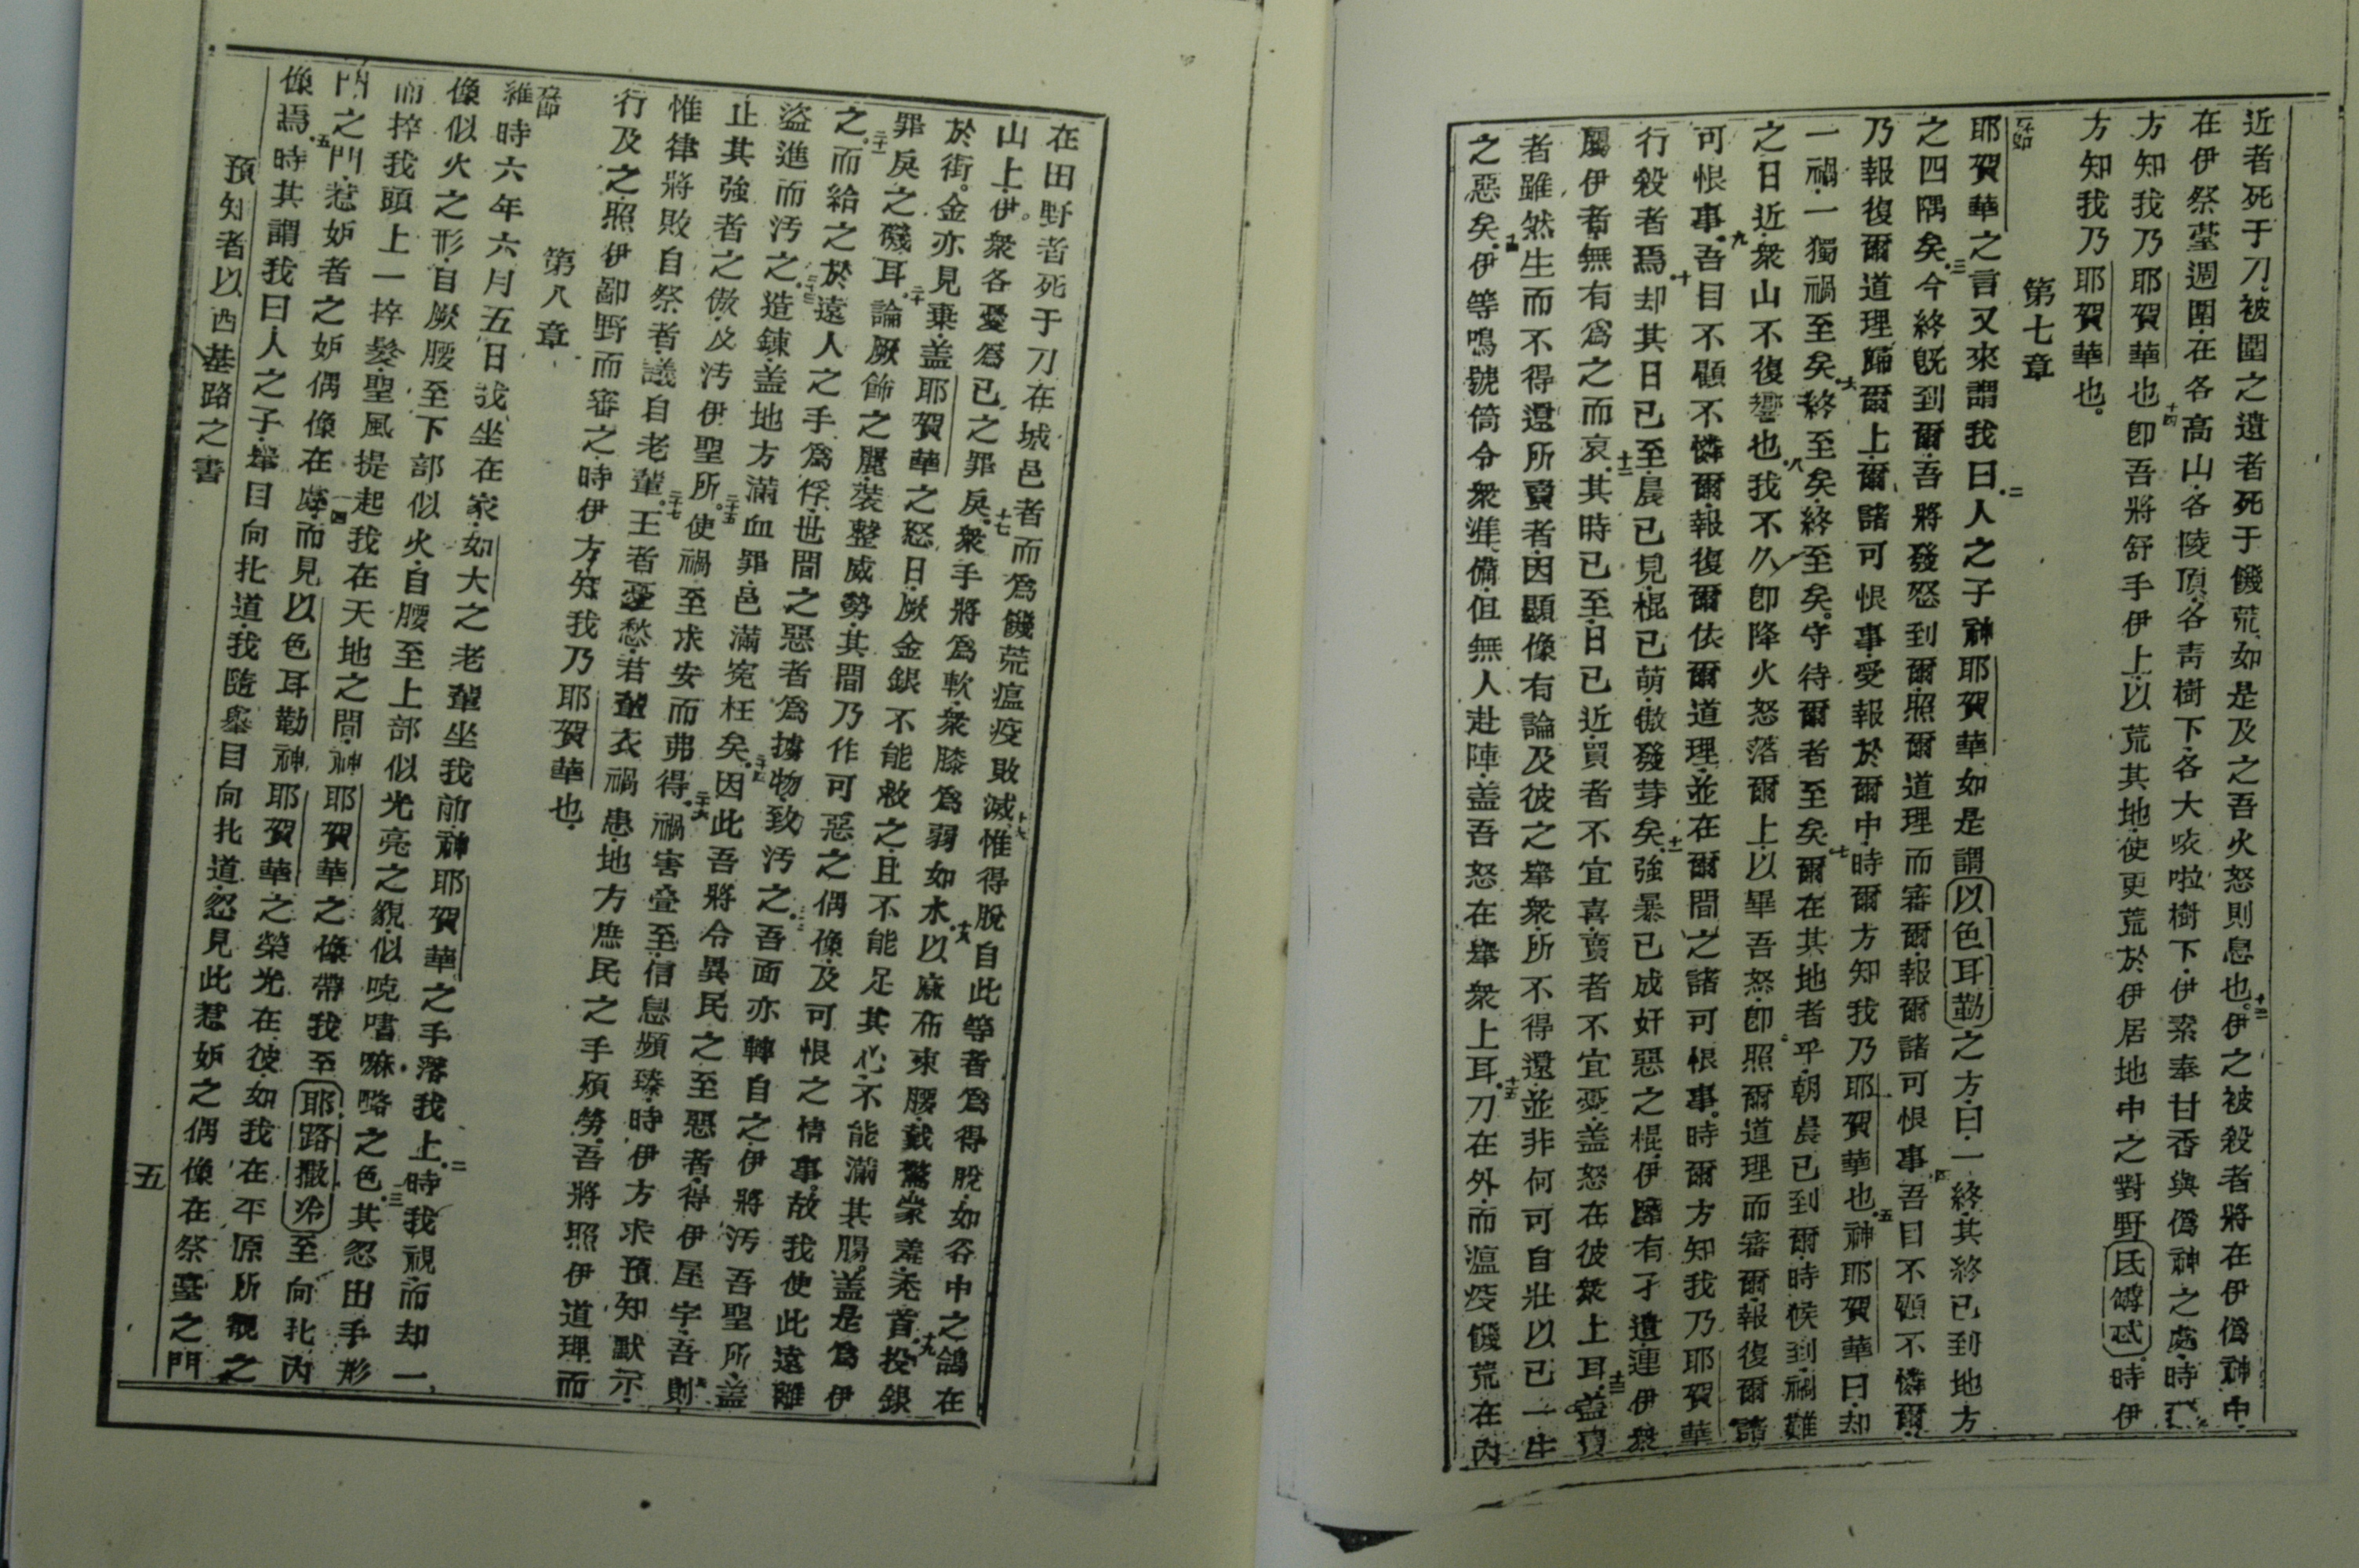 近者死于刀被圍之遺者死于饑荒如是及之吾火怒則息也十三伊之被殺者將在伊僞神中
在伊祭壇週圍在各高山各陵頂各靑樹下各大㕭啦樹下伊素奉甘香與僞神之處時
方知我乃耶賀華也十四卽吾將舒手伊上以荒其地使更荒於伊居地中之對野氐嘑忒時伊
方知我乃耶賀華也
第七章
耶賀華之言又來謂我曰二人之子神耶賀華如是謂以色耳勒之方曰一終其終已到地方
之四隅矣三今終旣到爾吾將發怒到爾照爾道理而審爾報爾諸可恨事四吾目不顧不憐爾
乃報復爾道理歸爾上爾諸可恨事受報於爾中時爾方知我乃耶賀華也五神耶賀華曰却
一禍一獨禍至矣六終至矣終至矣守待爾者至矣七爾在其地者乎朝晨已到爾時候到禍難
之日近衆山不復響也八我不久卽降火怒落爾上以畢吾怒卽照爾道理而審爾報復爾諸
可恨事九吾目不顧不憐爾報復爾依爾道理並在爾間之諸可恨事時爾方知我乃耶賀華
行殺者焉十却其日已至晨已見棍已萌傲發芽矣十一強暴已成奸惡之棍伊隆有孑遺連伊衆
屬伊者無有爲之而哀十二其時已至日已近買者不宜喜賣者不宜憂蓋怒在彼衆上耳十三蓋賣
者雖然生而不得還所賣者因顯像有論及彼之舉衆所不得還並非何可自壯以已一生
之惡矣十四伊等鳴號筒令衆準備但無人赴陣蓋吾怒在舉衆上耳十五刀在外而瘟疫饑荒在內
在田野者死于刀在城邑者而爲饑荒瘟疫敗滅十六惟得脫自此等者爲得脫如谷中之鴿在
山上伊衆各憂爲已之罪戾十七衆手將爲軟衆膝爲弱如水十八以麻布束腰戴驚蒙羞禿首十九投銀
於街金亦見棄蓋耶賀華之怒日厥金銀不能救之且不能足其心不能滿其腸蓋是爲伊
罪戾之磯耳二十論厥飾之麗裝整威勢其間乃作可惡之偶像及可恨之情事故我使此遠離
之二十一而給之於遠人之手爲俘世間之惡者爲擄物致汚之二十二吾面亦轉自之伊將汚吾聖所蓋
盜進而汚之二十三造鍊蓋地方滿血罪邑滿寃枉矣二十四因此吾將令異民之至惡者得伊屋宇吾則
止其強者之傲及汚伊聖所二十五使禍至求安而弗得二十六禍害疊至信息頻臻時伊方求預知默示
惟律將敗自祭者議自老輩二十七王者憂愁君輩衣禍患地方庶民之手煩勞吾將照伊道理而
行及之照伊鄙野而審之時伊方知我乃耶賀華也
第八章
維時六年六月五日我坐在家如大之老輩坐我前神耶賀華之手落我上二時我視而却一
像似火之形自厥腰至下部似火自腰至上部似光亮之貌似哓嗜嘛略之色三其忽出手形
而捽我頭上一捽髮聖風提起我在天地之間神耶賀華之像帶我至耶路撒冷至向北內
門之門惹妒者之妒偶像在處四而見以色耳勒神耶賀華之榮光在彼如我在平原所覩之
像焉五時其謂我曰人之子舉目向北道我隨舉目向北道忽見此惹妒之偶像在祭臺之門
預知者以西基路之書
五